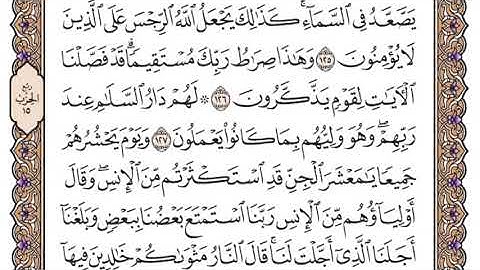 يَصَّعَّدُ فِي ٱلسَّمَآءِۚ كَذَٰلِكَ يَجۡعَلُ ٱللَّهُ ٱلرِّجۡسَ عَلَى ٱلَّذِينَ
لَا يُؤۡمِنُونَ ١٢٥ وَهَٰذَا صِرَٰطُ رَبِّكَ مُسۡتَقِيمٗاۗ قَدۡ فَصَّلۡنَا
ٱلۡأٓيَٰتِ لِقَوۡمٖ يَذَّكَّرُونَ ١٢٦ ۞ لَهُمۡ دَارُ ٱلسَّلَٰمِ عِندَ
رَبِّهِمۡۖ وَهُوَ وَلِيُّهُم بِمَا كَانُواْ يَعۡمَلُونَ ١٢٧ وَيَوۡمَ يَحۡشُرُهُمۡ
جَمِيعٗا يَٰمَعۡشَرَ ٱلۡجِنِّ قَدِ ٱسۡتَكۡثَرۡتُم مِّنَ ٱلۡإِنسِۖ وَقَالَ
أَوۡلِيَآؤُهُم مِّنَ ٱلۡإِنسِ رَبَّنَا ٱسۡتَمۡتَعَ بَعۡضُنَا بِبَعۡضٖ وَبَلَغۡنَآ
أَجَلَنَا ٱلَّذِيٓ أَجَّلۡتَ لَنَاۚ قَالَ ٱلنَّارُ مَثۡوَىٰكُمۡ خَٰلِدِينَ فِيهَآ
ربع
الحزب
١٥